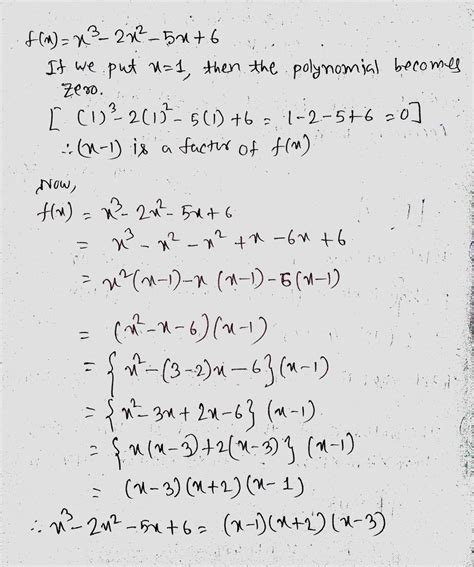 f(x) = x³ - 2x² - 5x + 6
If we put x=1, then the polynomial becomes
zero.
[ (1)³ - 2(1)² - 5(1) + 6 = 1-2-5+6 = 0]
∴ (x-1) is a factor of f(x)
Now,
f(x) = x³ - 2x² - 5x + 6
= x³ - x² - x² + x - 6x + 6
= x²(x-1) - x (x-1) - 6(x-1)
= (x² - x - 6)(x-1)
= {x² - (3-2)x - 6}(x-1)
= {x² - 3x + 2x - 6} (x-1)
= {x(x-3) + 2(x-3)} (x-1)
= (x-3)(x+2)(x-1)
∴ x³ - 2x² - 5x + 6 = (x-1)(x+2)(x-3)